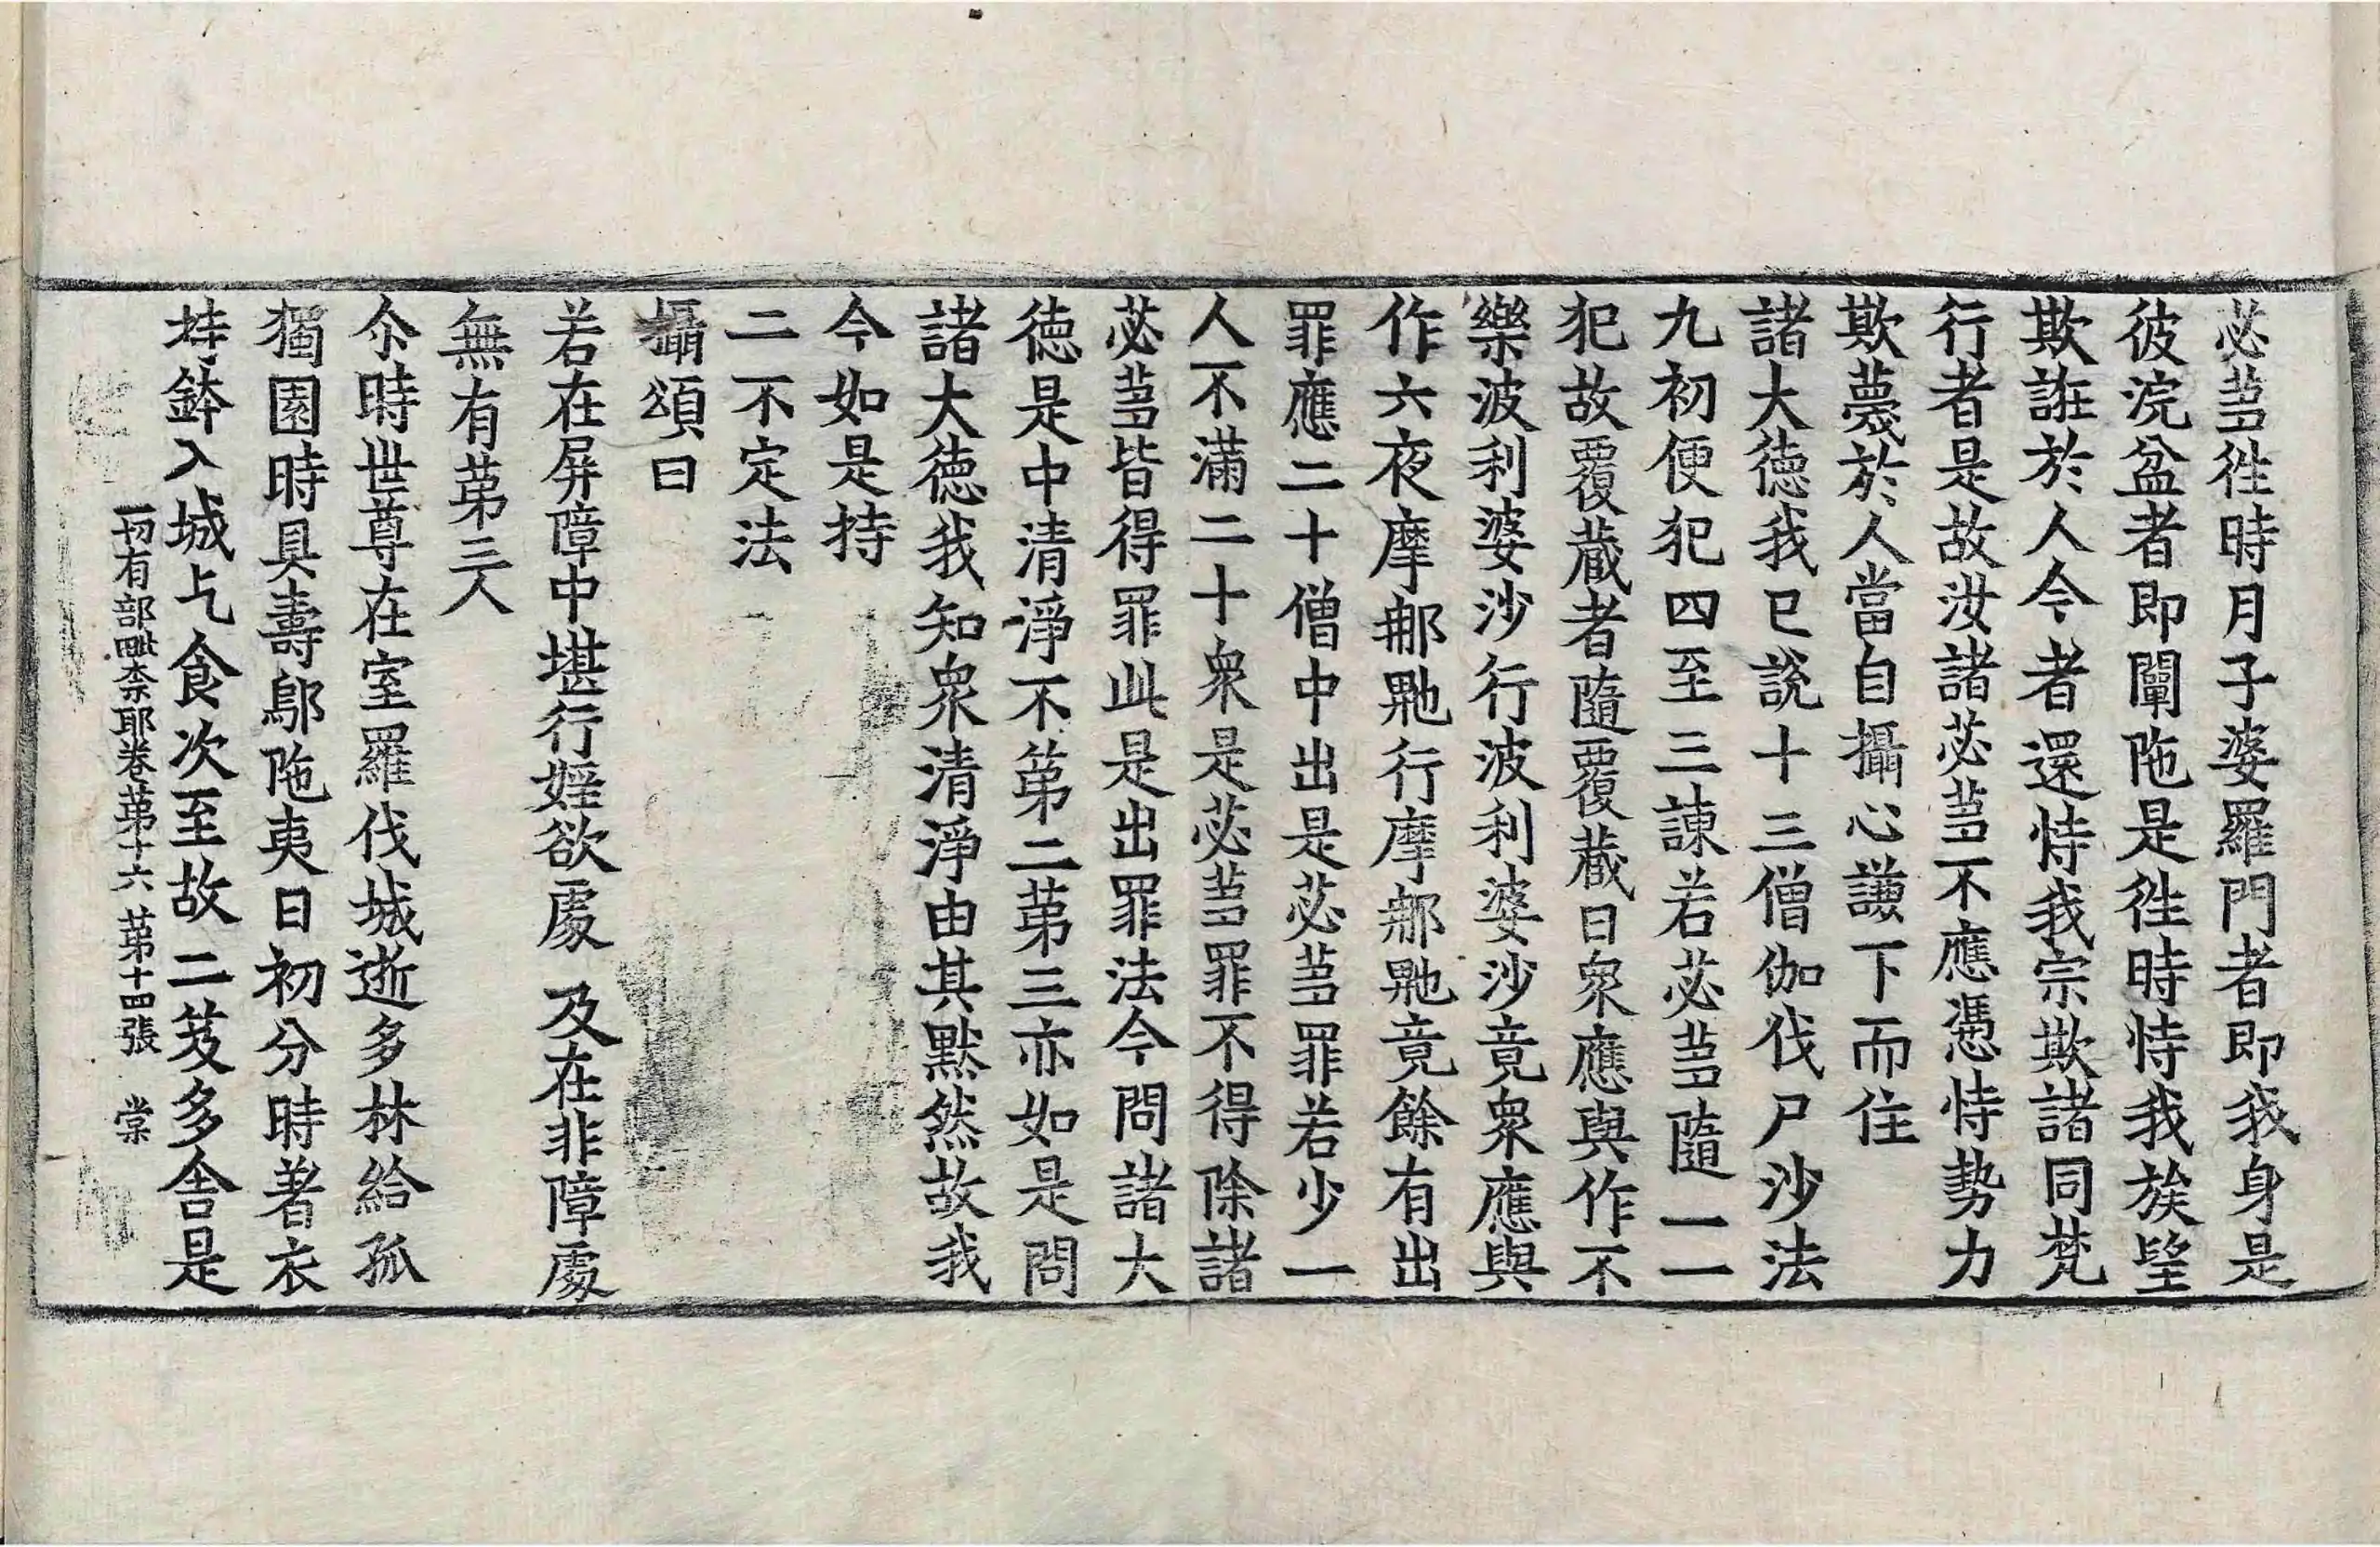 苾蒭往時月子婆羅門者即我身是
彼浣盆者即闡陁是往時恃我族望
欺誑於人今者還恃我宗欺諸同梵
行者是故汝諸苾蒭不應憑恃勢力
欺蔑於人當自攝心謙下而住
諸大德我已說十三僧伽伐尸沙法
九初便犯四至三諫若苾蒭隨一一
犯故覆藏者隨覆藏日衆應與作不
樂波利婆沙行波利婆沙竟衆應與
作六夜摩那𠼝行摩那𠼝竟餘有出
罪應二十僧中出是苾蒭罪若少一
人不滿二十衆是苾蒭罪不得除諸
苾蒭皆得罪此是出罪法今問諸大
德是中清淨不第二第三亦如是問
諸大德我知衆清淨由其默然故我
今如是持
二不定法
攝頌曰
若在屏障中堪行婬欲處 及在非障處
無有第三人
尒時世尊在室羅伐城逝多林給孤
獨園時具壽鄔陁夷日初分時著衣
持鉢入城乞食次至故二笈多舍是
一切有部毗柰耶卷第十六 第十四張 棠